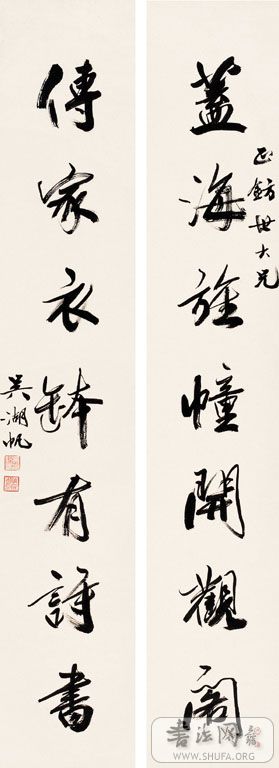 蓋海旌幢開觀閣
正鈁世大兄
傳家衣缽有詩書
吳湖帆
書法网
WWW.SHUFA.ORG